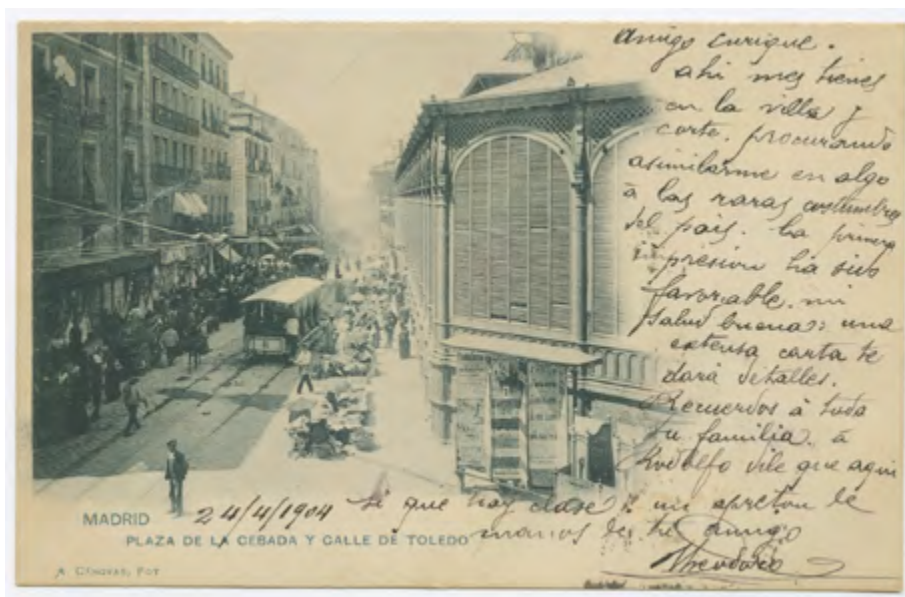 Amigo Enrique.
ahi me tienes
en la villa y
corte. procurando
asimilarme en algo
á las raras costumbres
del pais. La primera
presion ha sido
favorable. mi
salud buena: una
extensa carta te
dará detalles.
Recuerdos á toda
tu familia. á
Rodolfo dile que aqui
si que hay clase y un apreton de
manos de tu amigo
Theodorio
24/4/1904
MADRID
PLAZA DE LA CEBADA Y CALLE DE TOLEDO
A. CÁNOVAS, FOT